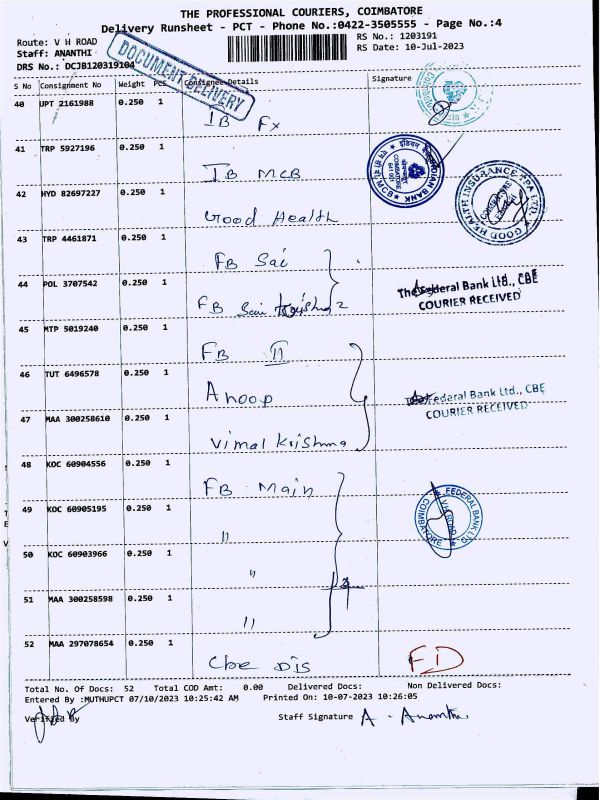 THE PROFESSIONAL COURIERS, COIMBATORE
Delivery Runsheet - PCT - Phone No.:0422-3505555 - Page No.:4
Route: V H ROAD RS No.: 1203191
Staff: ANANTHI RS Date: 10-Jul-2023
DRS No.: DCJB120319104
DOCUMENT DELIVERY
S No Consignment No Weight PCS Consignee Details Signature
40 UPT 2161988 0.250 1 IB Fx
41 TRP 5927196 0.250 1 IB MCB
INDIAN BANK
COIMBATORE
42 HYD 82697227 0.250 1 Good Health
GOOD HEALTH INSURANCE TPA LTD.
COIMBATORE
43 TRP 4461871 0.250 1 FB Sai
44 POL 3707542 0.250 1 FB Sai Krishna 2
The Federal Bank Ltd., CBE
COURIER RECEIVED
45 MTP 5019240 0.250 1 FB II
46 TUT 6496578 0.250 1 Anoop
Federal Bank Ltd., CBE
COURIER RECEIVED
47 MAA 300258610 0.250 1 Vimal Krishna
48 KOC 60904556 0.250 1 FB Main
49 KOC 60905195 0.250 1 "
FEDERAL BANK LTD
V.H. ROAD
COIMBATORE
50 KOC 60903966 0.250 1 "
51 MAA 300258598 0.250 1 "
52 MAA 297078654 0.250 1 Cbe Dis FD
Total No. Of Docs: 52 Total COD Amt: 0.00 Delivered Docs: Non Delivered Docs:
Entered By :MUTHUPCT 07/10/2023 10:25:42 AM Printed On: 10-07-2023 10:26:05
Verified By Staff Signature A. Ananthi